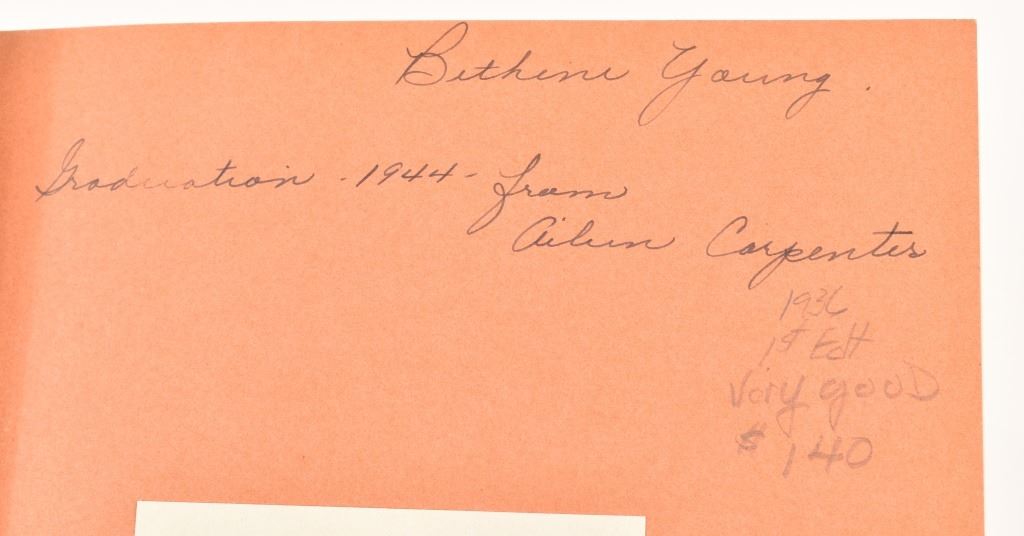 Bethene Young.
Graduation - 1944 - from
Aileen Carpenter
1936
1st Edt
Very gooD
$140